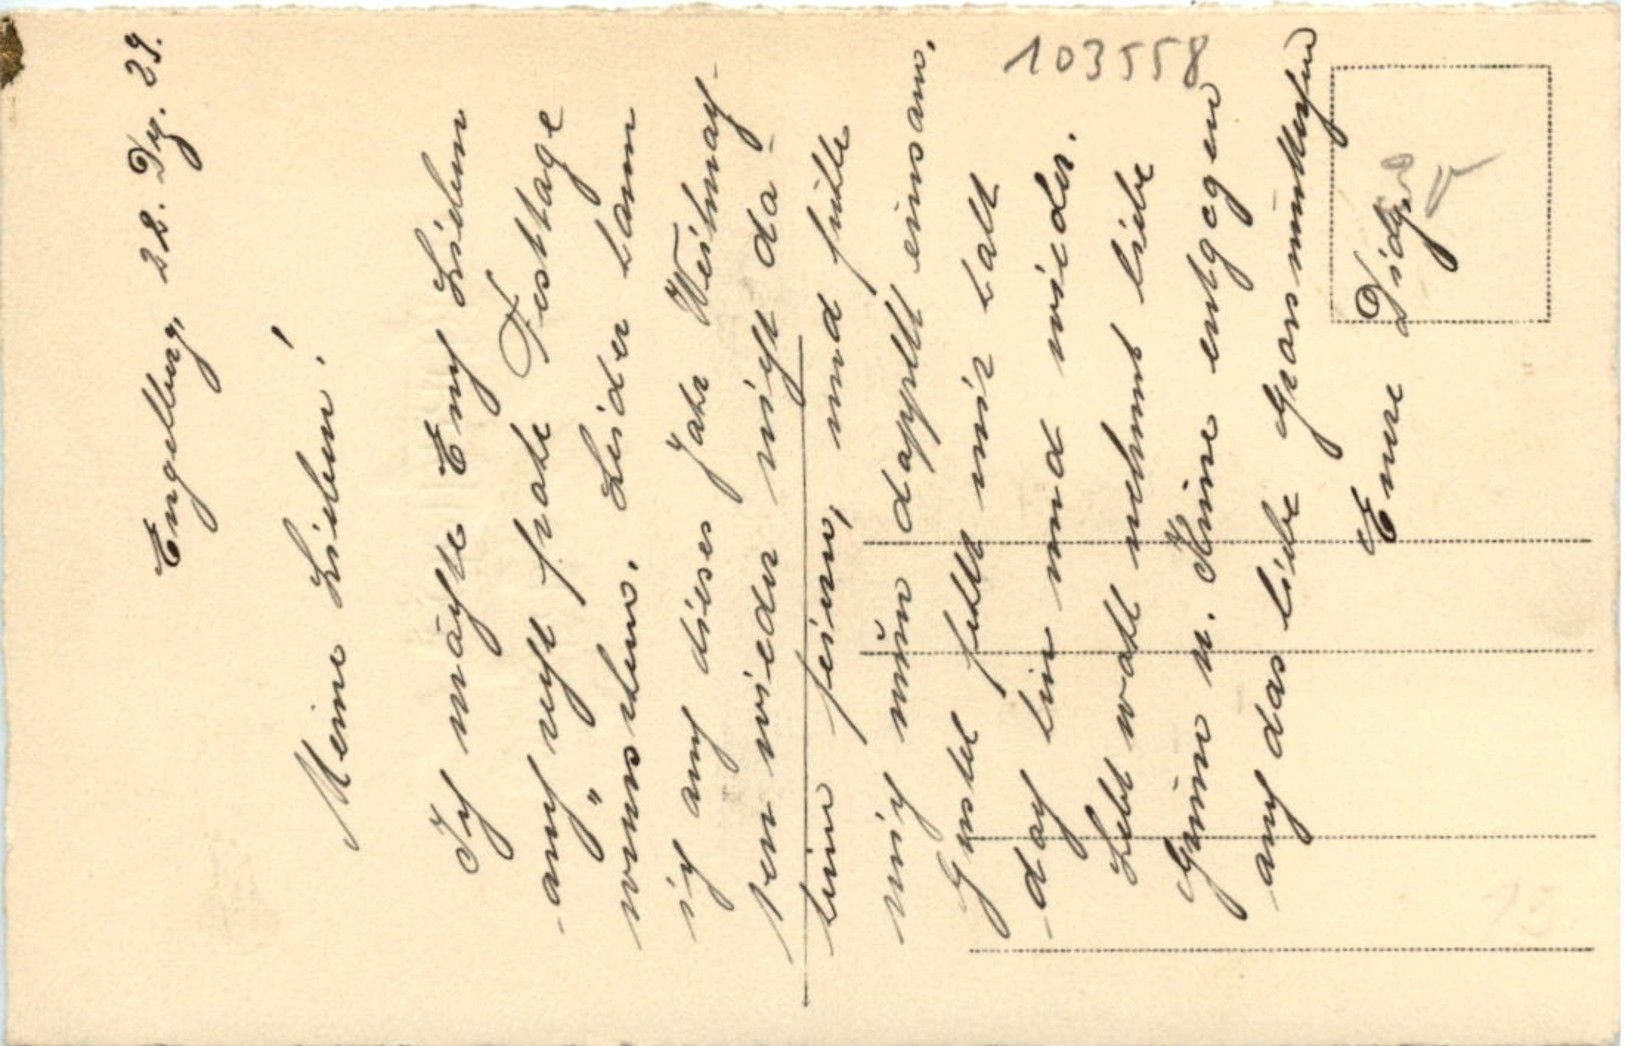 Engelberg, 22. Dez. 29.
Meine Lieben!
Ich möchte Euch Lieben
auch recht frohe Festtage
wünschen. Leider kann
ich auch dieses Jahr Weihnach-
ten wieder nicht da-
heim feiern, und fühle
mich nun doppelt einsam.
Gustel fehlt mir halt
doch hin und wieder.
Lebt wohl nehmt liebe
Grüsse u. Küsse entgegen
auch das liebe Grossmütterchen
Eure
103558